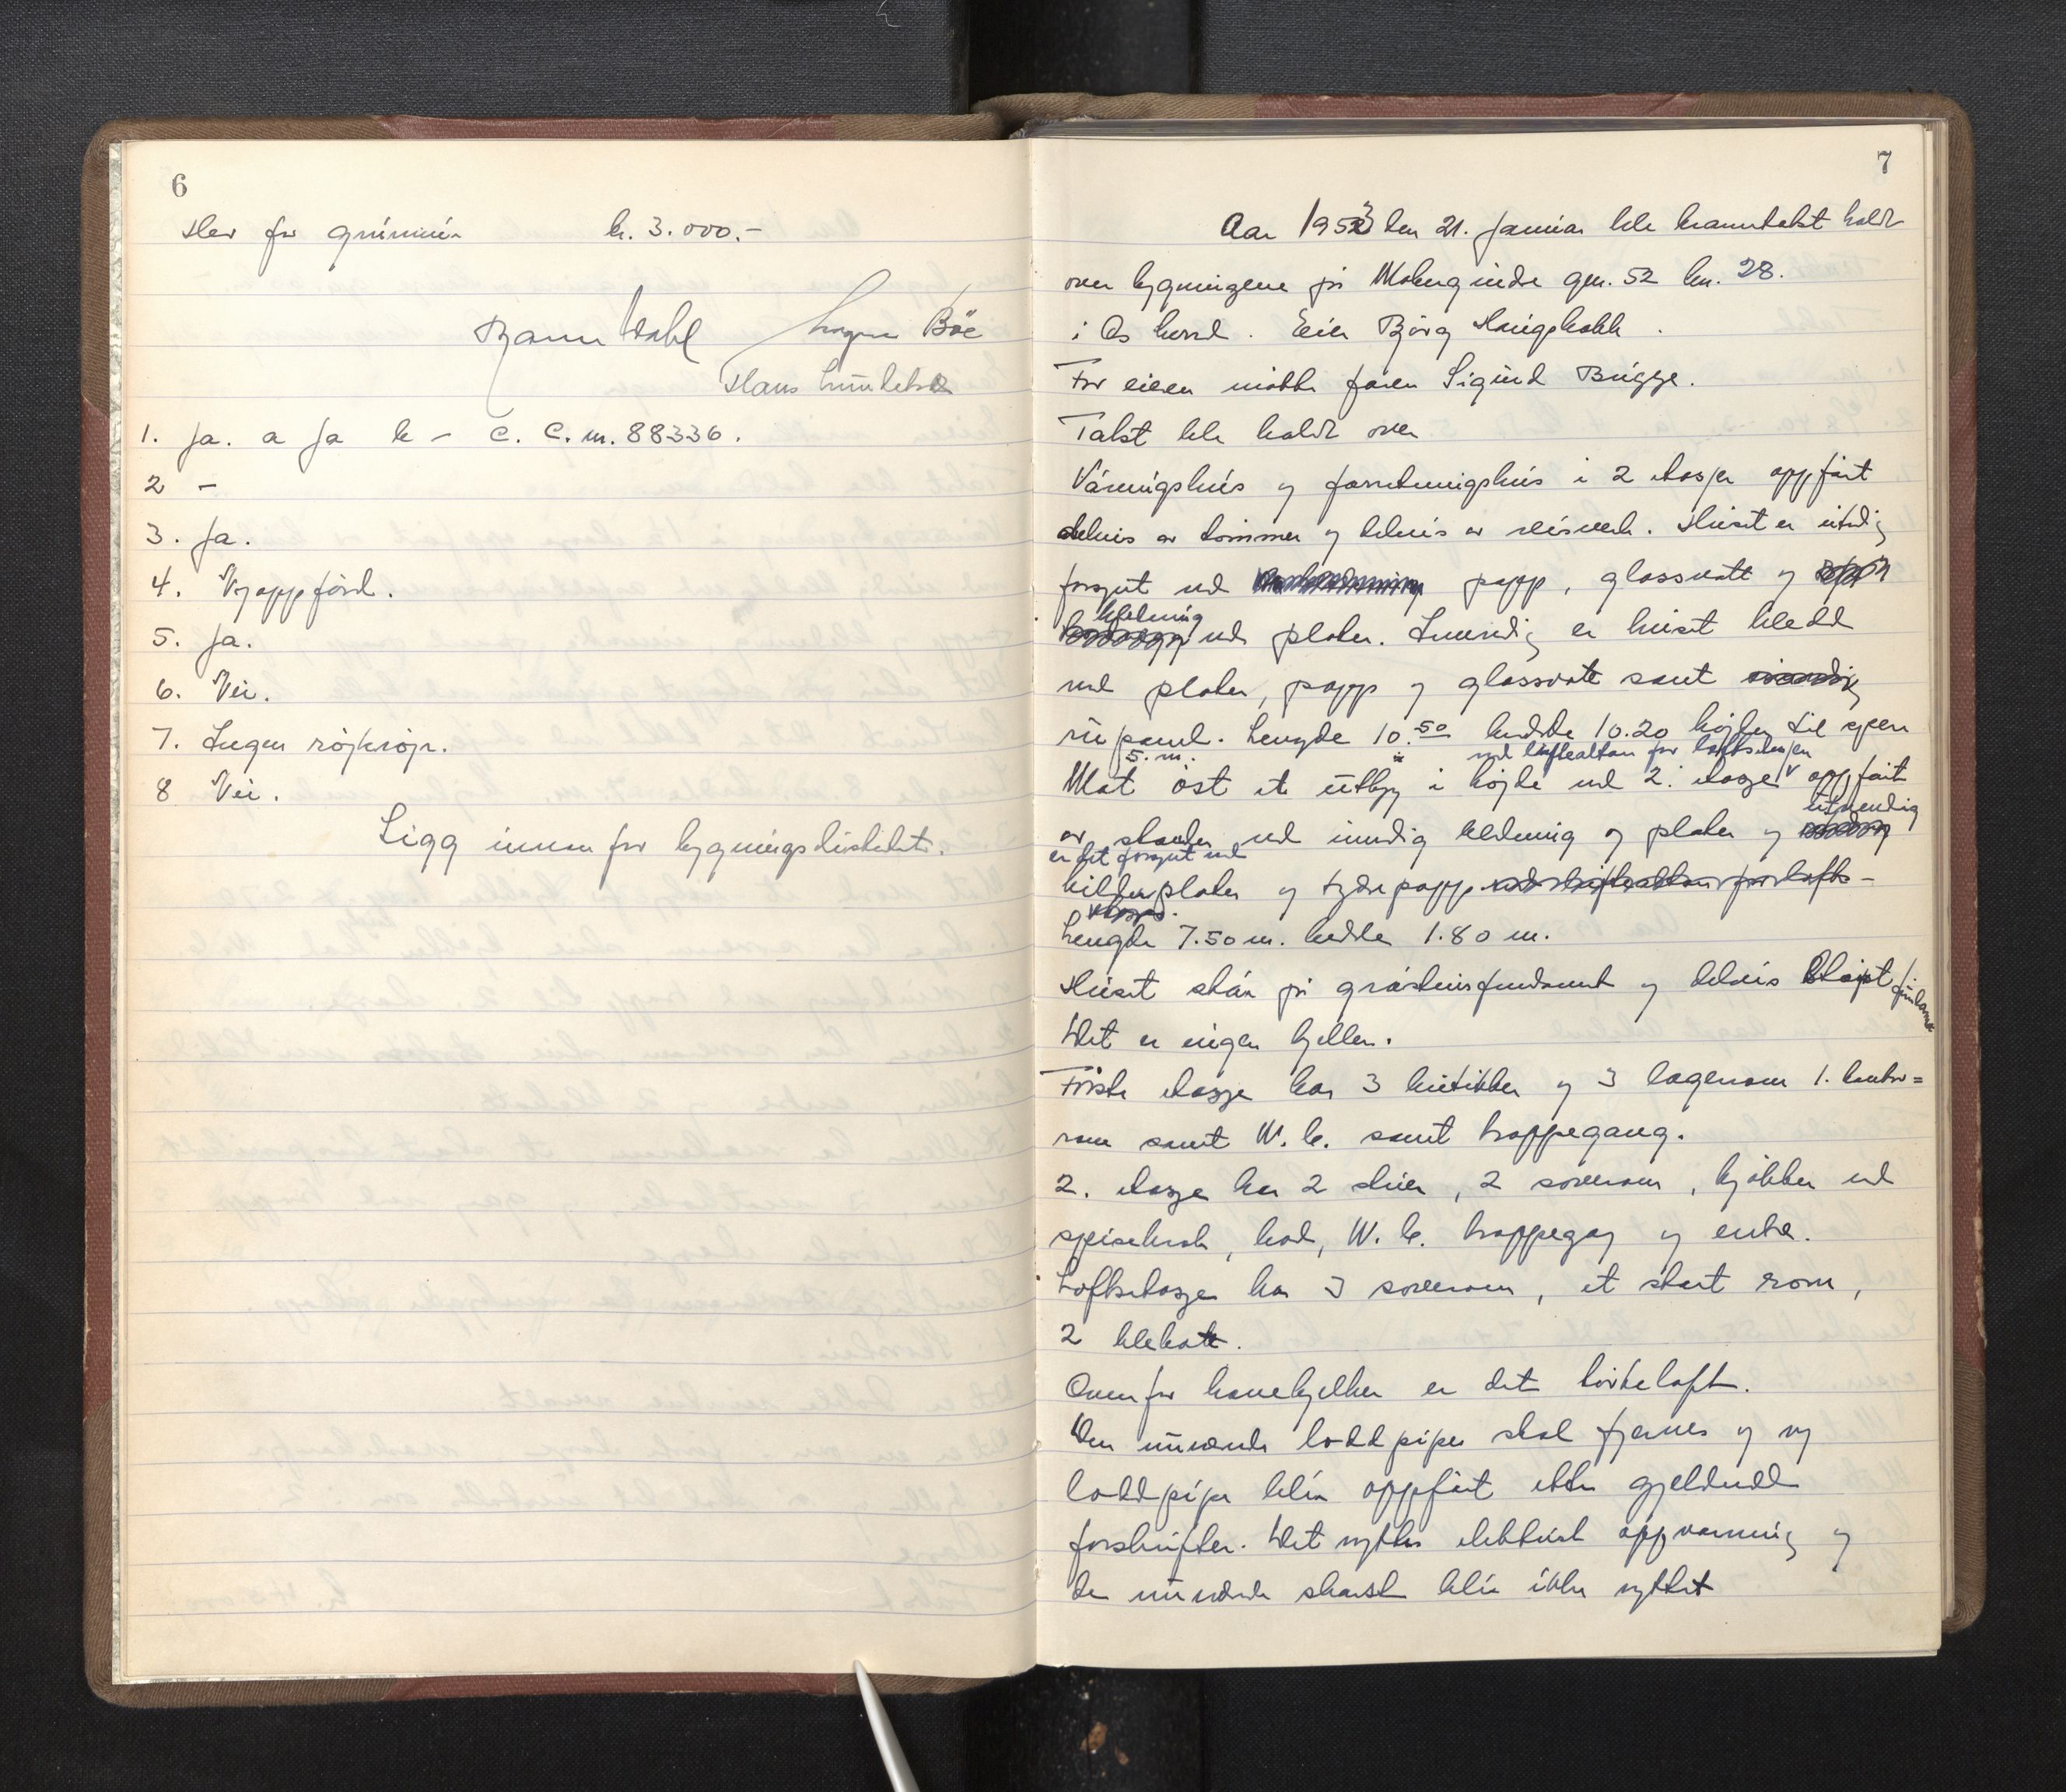 6
Herav for grunnmur kr. 3.000.-
Bjarne Dahl Magnus Bøe
Hans
1. Ja. a Ja b - c. C. m. 88336.
2 -
3. Ja.
4. Nyoppförd.
5. Ja.
6. Nei.
7. Ingen röykrör.
8 Nei.
Ligg innen for bygningsdistriktet.
7
Aar 1953 den 21. januar ble branntakst holdt
over bygningene på Moberg indre gnr. 52 bn. 28.
i Os herred. Eier Björg Haugsbakk.
For eieren møtte faren Sigurd Brigge.
Takst ble holdt over
Våningshus og forretningshus i 2 etasjer oppfört
delvis av tömmer og delvis av reisverk. Huset er utvendig
forsynt med papp, glassvatt og
kledning med plater. Innvendig er huset kledd
med plater, papp og glassvatt samt
rupanel. Lengde 10.50 bredde 10.20 höyden til gjen
5. m.
Mot öst et utbygg i höyde med 2. etasje med luftealtan for loftsetasjen oppfört
av stender med innvendig kledning og plater og utvendig
er det forsynt med
plater og tjærepapp
Lengde 7.50 m. bredde 1.80 m.
Huset står på gråsteinsfundament og delvis stöpt fundament
Det er ingen kjeller.
Förste etasje har 3 butikker og 3 lagerrom 1. kontor=
rom samt W.C. samt trappegang.
2. etasje har 2 stuer, 2 soverom, kjökken med
spisekrok, bad, W.C. trappegang og entre.
Loftsetasjen har 3 soverom, et stort rom,
2 klekott.
Ovenfor hanebjelken er det törkeloft.
Den nuværende loddpipe skal fjernes og ny
loddpipe blir oppfört etter gjeldende
forskrifter. Det nyttes elektrisk oppvarming og
den nuværende skorsten blir ikke nyttet